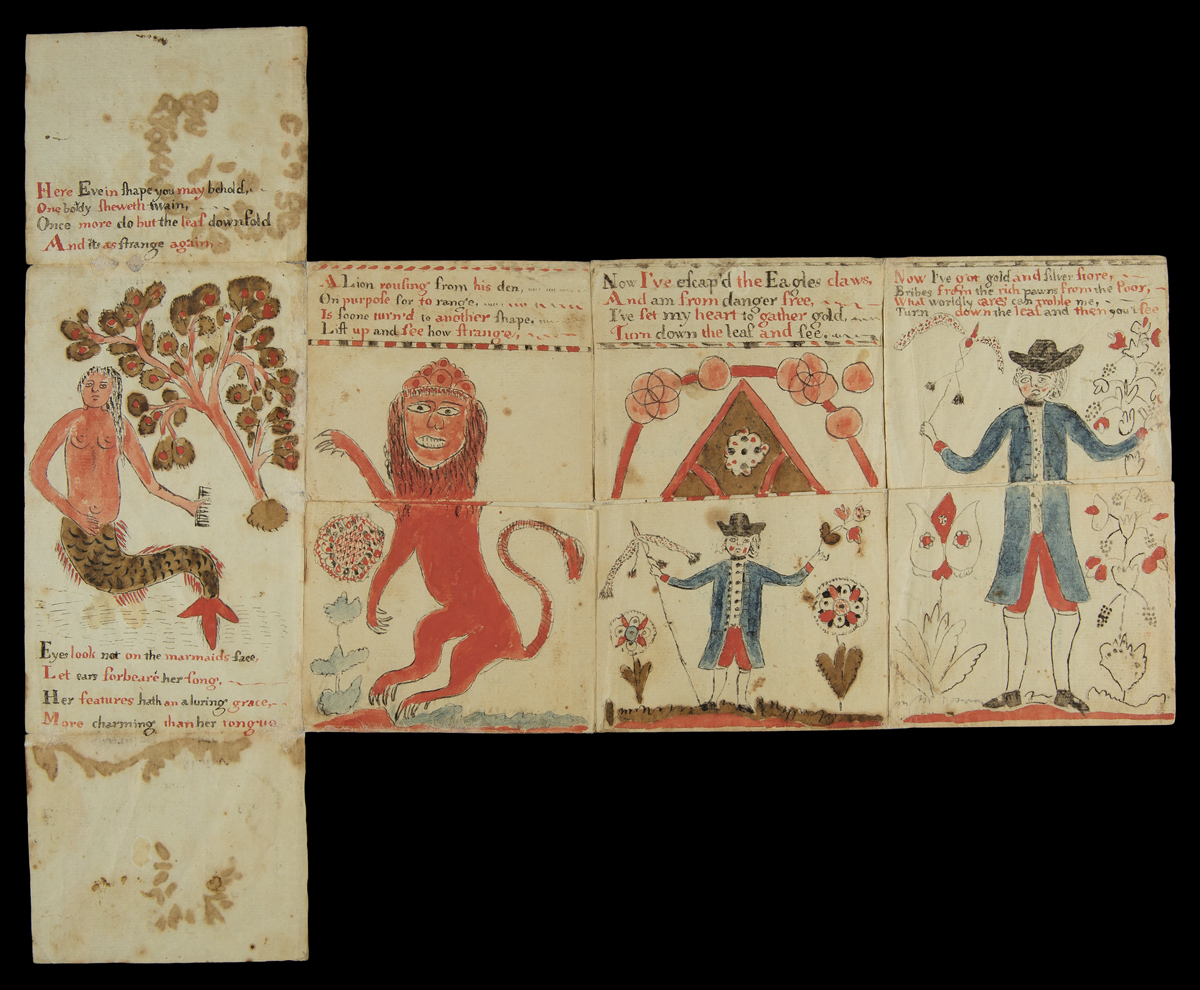 Here Eve in shape you may behold,
One body sheweth twain,
Once more do but the leaf downfold
And its as strange again
Eyes look not on the marmaids face,
Let ears forbeare her song,
Her features hath an aluring grace,
More charming than her tongue
A Lion rousing from his den,
On purpose for to range,
Is soone turn'd to another shape,
Lift up and see how strange,
Now I've escap'd the Eagles claws,
And am from danger free,
I've set my heart to gather gold,
Turn down the leaf and see,
Now I've got gold and silver store,
Bribes from the rich pawns from the Poor,
What worldly cares can troble me,
Turn down the leaf and then you'l see